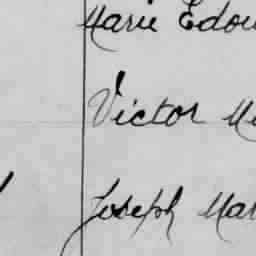 Marie Edou
Victor Ma
Joseph Mar